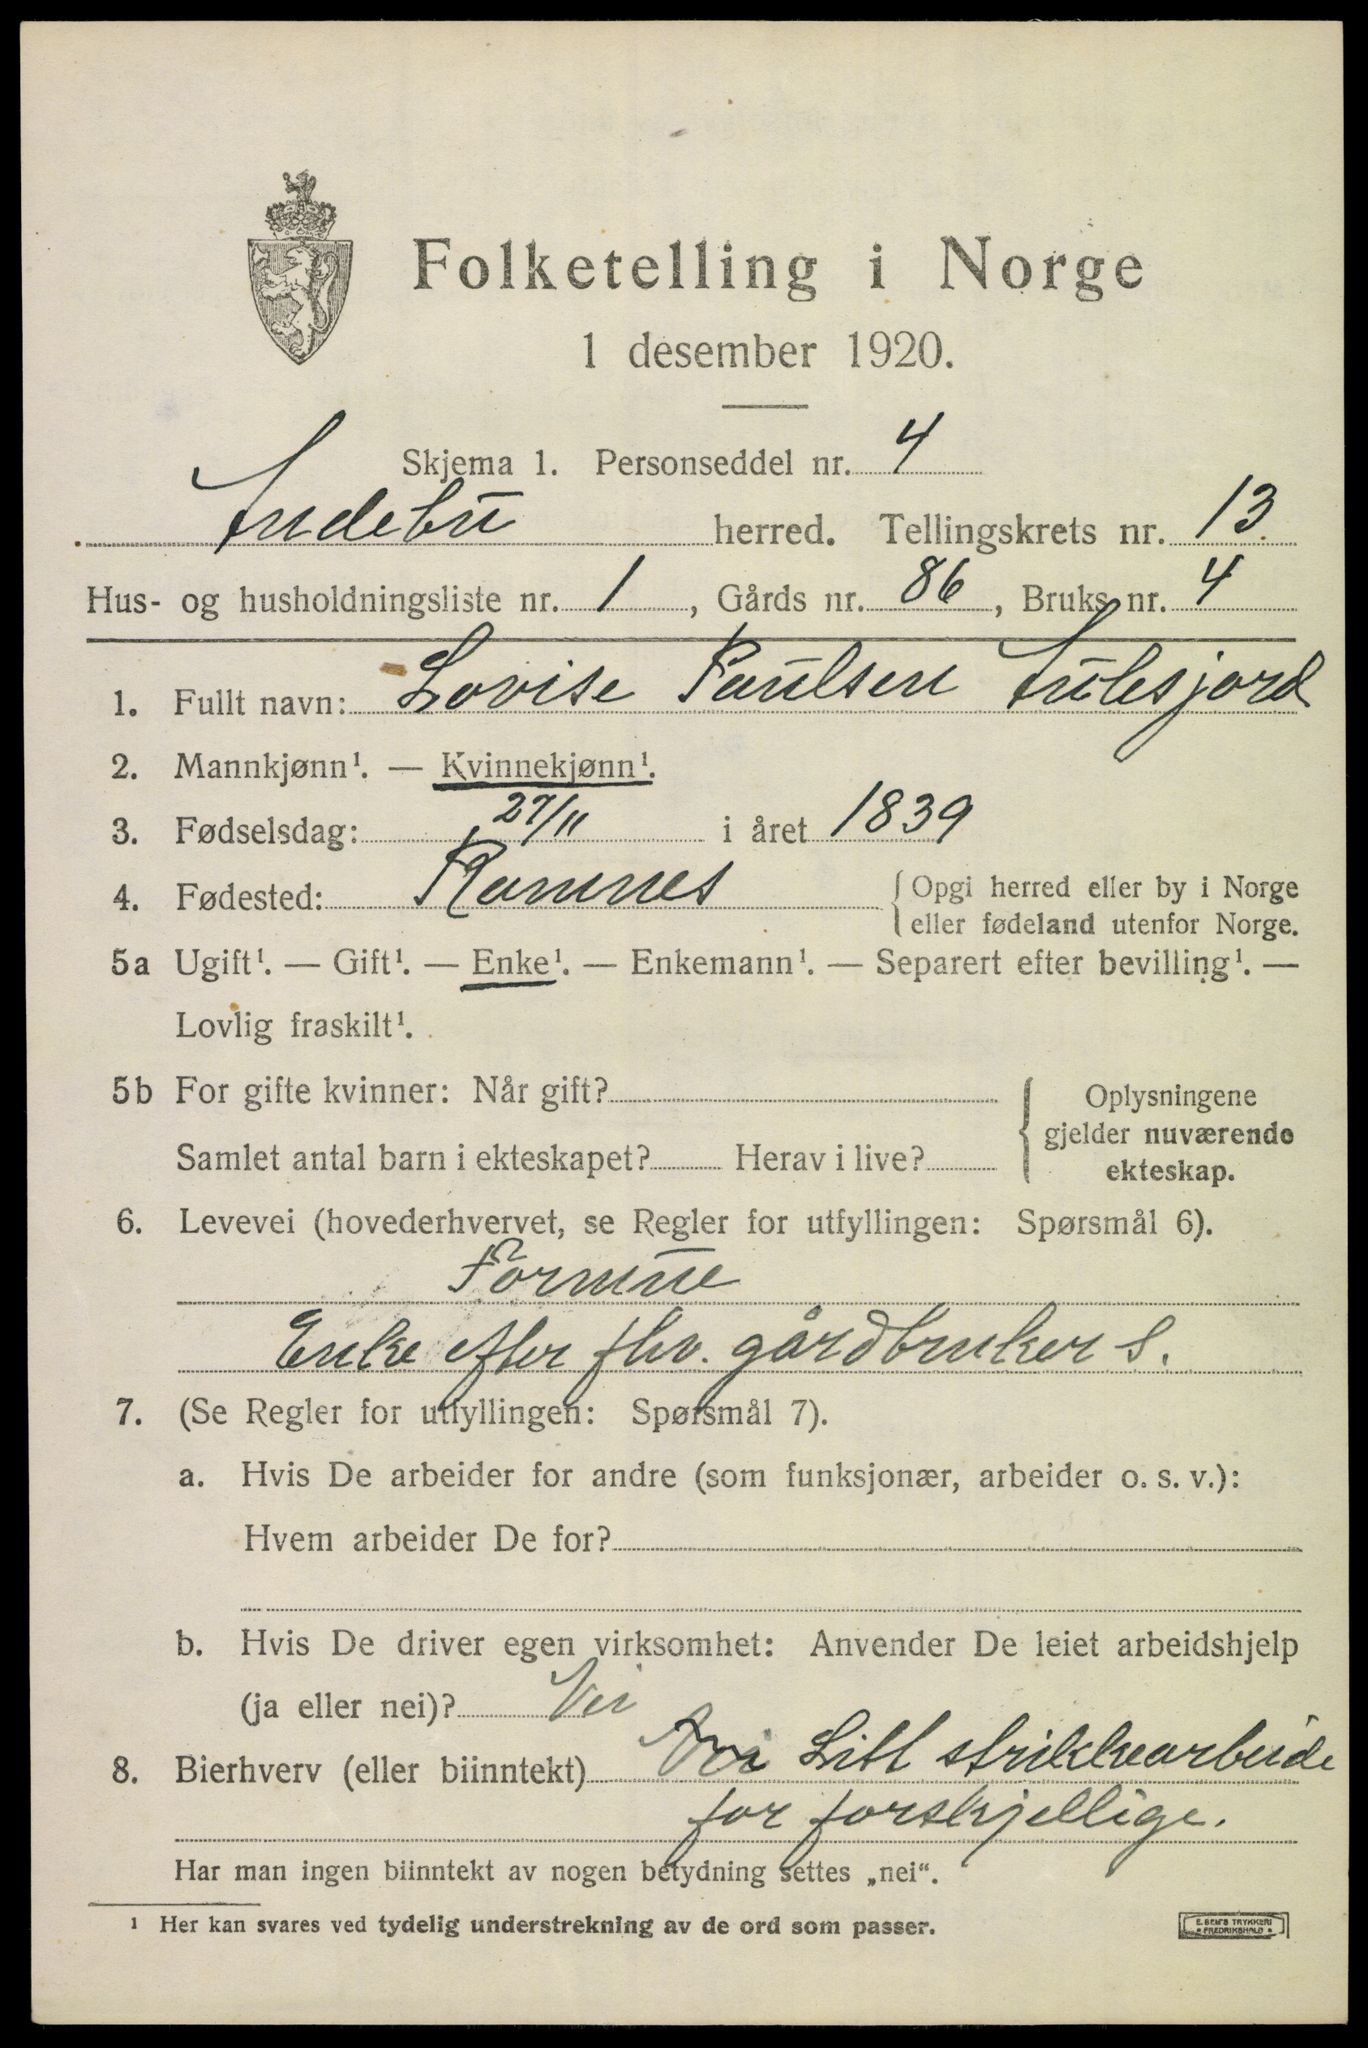 Folketelling i Norge
1 desember 1920.
Skjema 1. Personseddel nr. 4
Andebu herred. Tellingskrets nr. 13
Hus- og husholdningsliste nr. 1, Gårds nr. 86, Bruks nr. 4
1. Fullt navn: Lovise Paulsen Aulesjord
2. Mannkjønn¹. — Kvinnekjønn¹.
3. Fødselsdag: 27/11 i året 1839
4. Fødested: Ramnes { Opgi herred eller by i Norge
eller fødeland utenfor Norge.
5a Ugift¹. — Gift¹. — Enke¹. — Enkemann¹. — Separert efter bevilling¹. —
Lovlig fraskilt¹.
5b For gifte kvinner: Når gift?
Samlet antal barn i ekteskapet? Herav i live?
{ Oplysningene
gjelder nuværende
ekteskap.
6. Levevei (hovederhvervet, se Regler for utfyllingen: Spørsmål 6).
Formue
Enke efter fhv. gårdbruker s.
7. (Se Regler for utfyllingen: Spørsmål 7).
a. Hvis De arbeider for andre (som funksjonær, arbeider o. s. v.):
Hvem arbeider De for?
b. Hvis De driver egen virksomhet: Anvender De leiet arbeidshjelp
(ja eller nei)? Nei
8. Bierhverv (eller biinntekt) Litt strikkearbeide
for forskjellige.
Har man ingen biinntekt av nogen betydning settes „nei“.
¹ Her kan svares ved tydelig understrekning av de ord som passer.
E. SEM'S TRYKKERI
FREDRIKSHALD